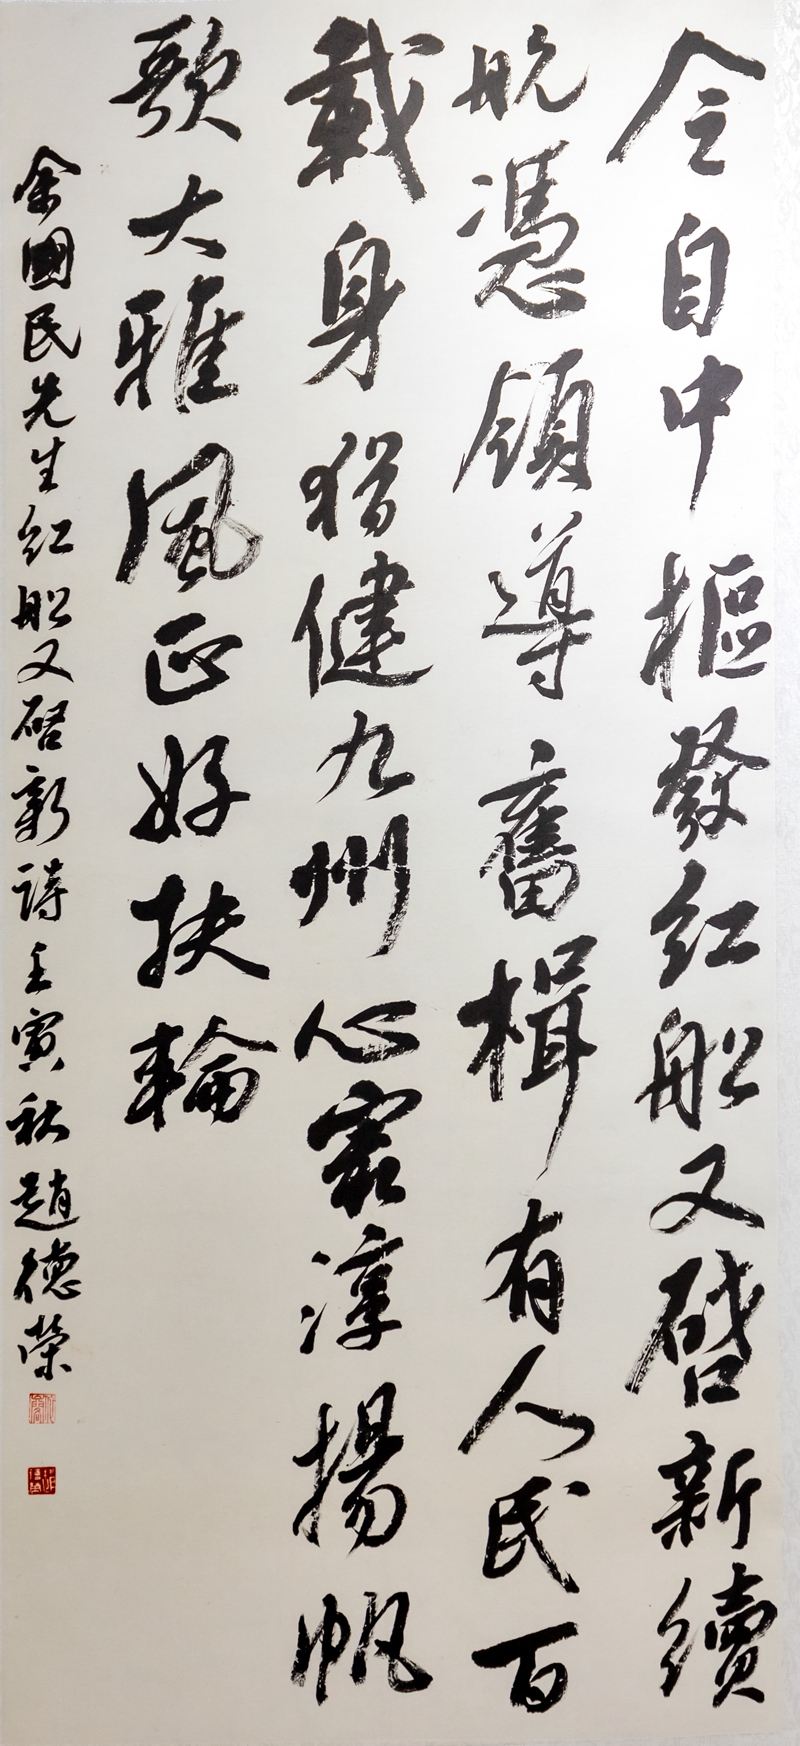 令自中樞發紅船又啓新續
航憑領導奮楫有人民百
載身猶健九州心最淳揚帆
歌大雅風正好扶輪
余國民先生紅船又啓新詩壬寅秋趙德榮